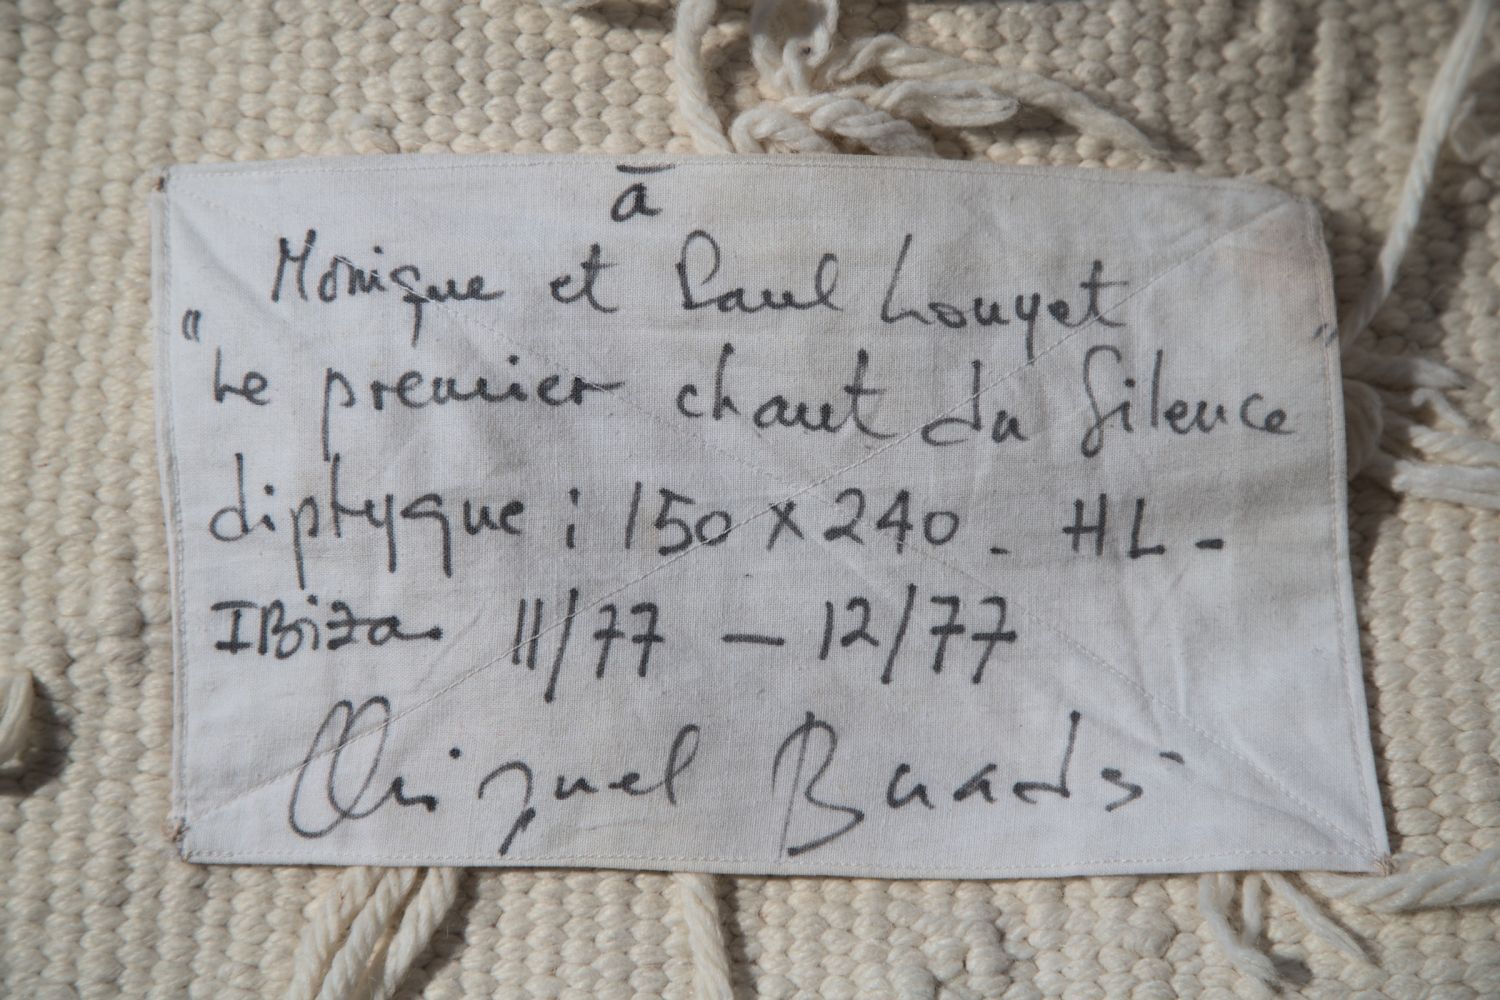 à
Monique et Paul Louyet
"Le premier chant du Silence"
diptyque : 150 x 240 - HL -
IBiza. 11/77 — 12/77
Miguel